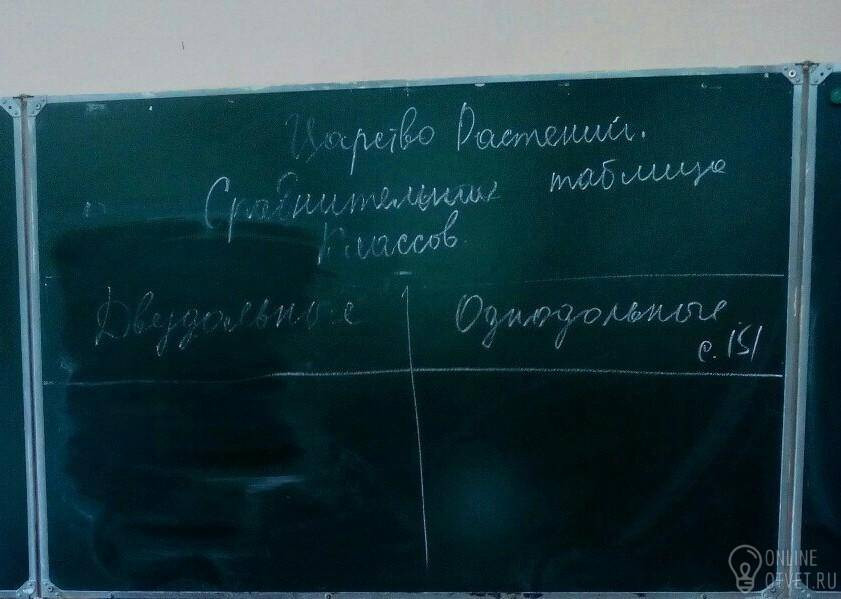 Царство Растений.
Сравнительная таблица
Классов.
Двудольные
Однодольные
с. 151
ONLINE
OTVET.RU